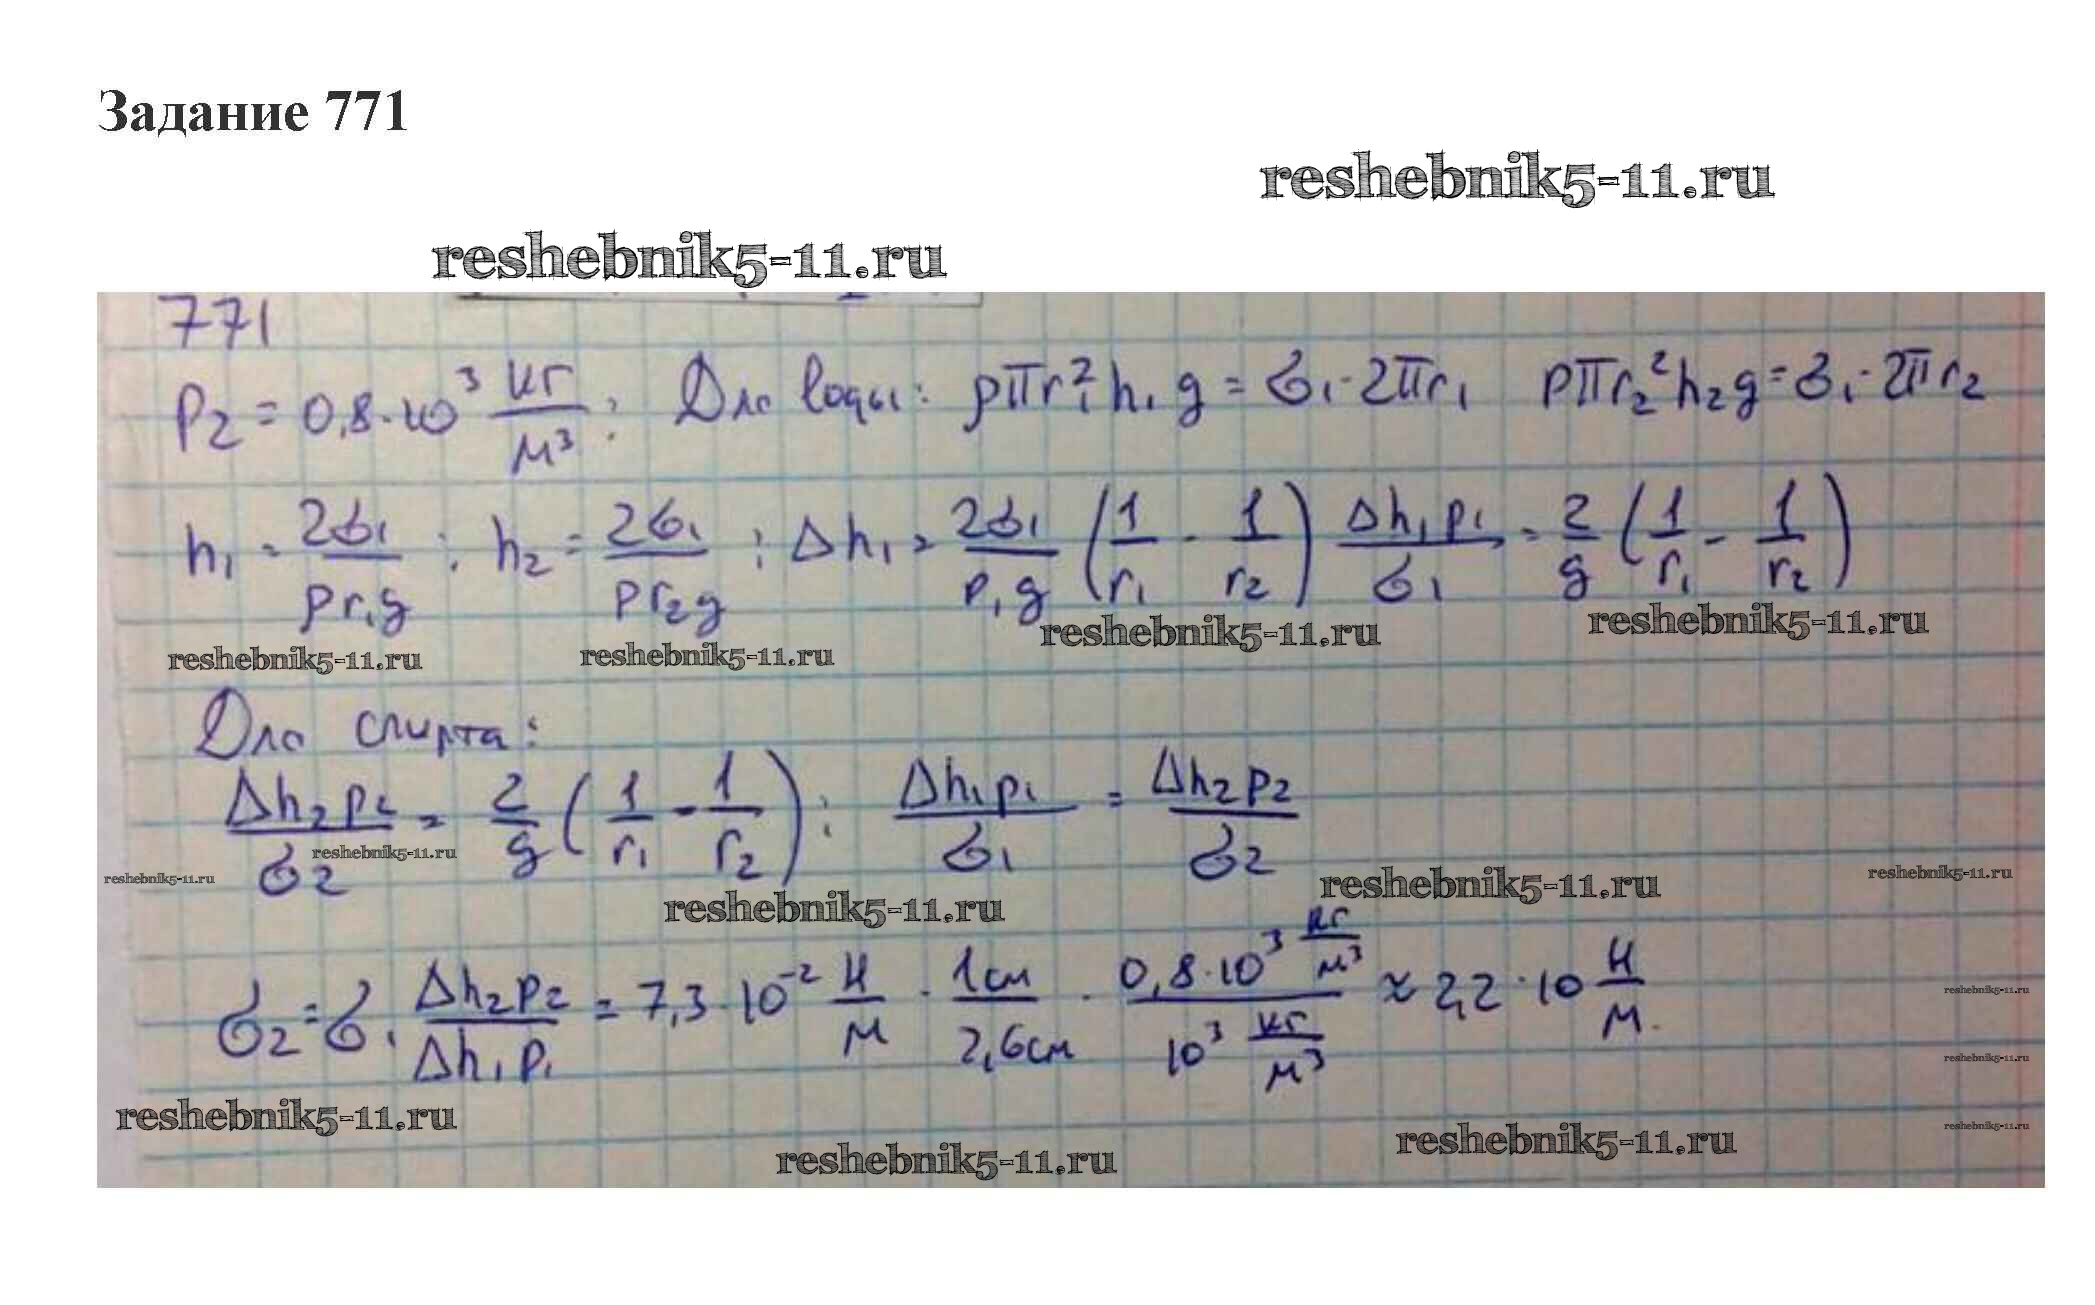 Задание 771
reshebnik5-11.ru
reshebnik5-11.ru
771
ρ₂ = 0,8·10³ кг/м³; Для воды: ρπr₁²h₁g = σ₁·2πr₁ ρπr₂²h₂g = σ₁·2πr₂
h₁ = 2σ₁/ρr₁g ; h₂ = 2σ₁/ρr₂g ; Δh₁ = 2σ₁/ρ₁g (1/r₁ - 1/r₂) Δh₁ρ₁/σ₁ = 2/g (1/r₁ - 1/r₂)
reshebnik5-11.ru reshebnik5-11.ru reshebnik5-11.ru reshebnik5-11.ru
Для спирта:
Δh₂ρ₂/σ₂ = 2/g (1/r₁ - 1/r₂) ; Δh₁ρ₁/σ₁ = Δh₂ρ₂/σ₂
reshebnik5-11.ru reshebnik5-11.ru reshebnik5-11.ru reshebnik5-11.ru reshebnik5-11.ru
σ₂ = σ₁ Δh₂ρ₂/Δh₁ρ₁ = 7,3·10⁻² Н/м · 1см/2,6см · 0,8·10³ кг/м³/10³ кг/м³ ≈ 2,2·10 Н/м.
reshebnik5-11.ru
reshebnik5-11.ru
reshebnik5-11.ru reshebnik5-11.ru reshebnik5-11.ru reshebnik5-11.ru